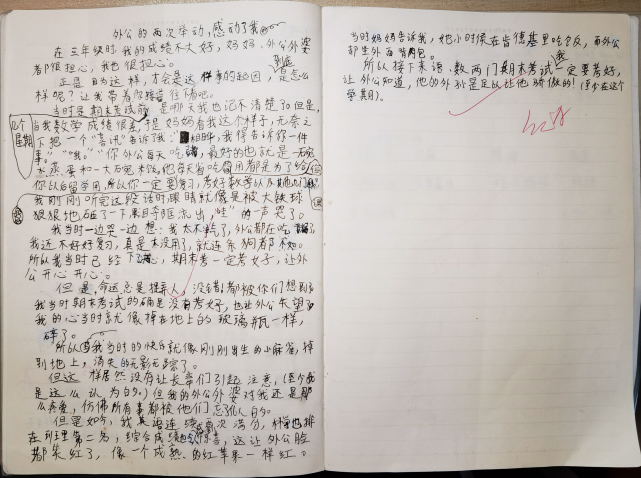 外公的两次举动,感动了我
在三年级时我的成绩不大好,妈妈、外公外婆
都很担心,我也很担心。
正是因为这样,才会是这样事的起因,到底是怎么
样呢?让我带着你 往下看吧。
当时是期末考试前 是哪天我也记不清楚了但是,
几个星期
当我数学成绩很差,于是妈妈看我这个样子,无奈之
下把一个“喜讯”告诉了我:“ 相 ,我得告诉你一件
事。”“哦。”“你外公每天吃 ,最好的也就是一碗
水蒸蛋和一大碗 饭,他每天省吃俭用都是为了给
你以后留学用,所以你一定要复习,考好数学
我刚刚听完这段话时眼睛就像是被大铁球
狠狠地砸了一下 夺眶流出,“哇”的一声哭了。
我当时一边哭一边想:我太不 了,外公都在吃
我还不好好复习,真是太没用了,就连条狗都不如。
所以我当时已经下了决心,期末考一定考好,让外
公开心开心。
但是,命运总是捉弄人,没错!都被你们想到了
我当时期末考试的确是没有考好,也让外公失望
我的心当时就像掉在地上的玻璃瓶一样,
碎了。
所以 我当时的快乐就像刚刚出生的小麻雀,掉
到地上,消失的无影无踪了。
但这样居然没有让长辈们引起注意,(至少我
是这么认为的。)但我的外公外婆对我还是那
么疼爱,仿佛所有事都被他们忘了似的。
但是如今,我 连续 次满分,科学也排
在班里第二名,综合成绩 ,这让外公脸
都笑红了,像一个成熟的红苹果一样红。
当时妈妈告诉我,她小时候在肯德基里吃饭,而外公
却坐外面啃面包。
所以接下来语、数两门期末考试我一定要考好,
让外公知道,他的外孙是足以让他骄傲的!(至少在这
个学期)。